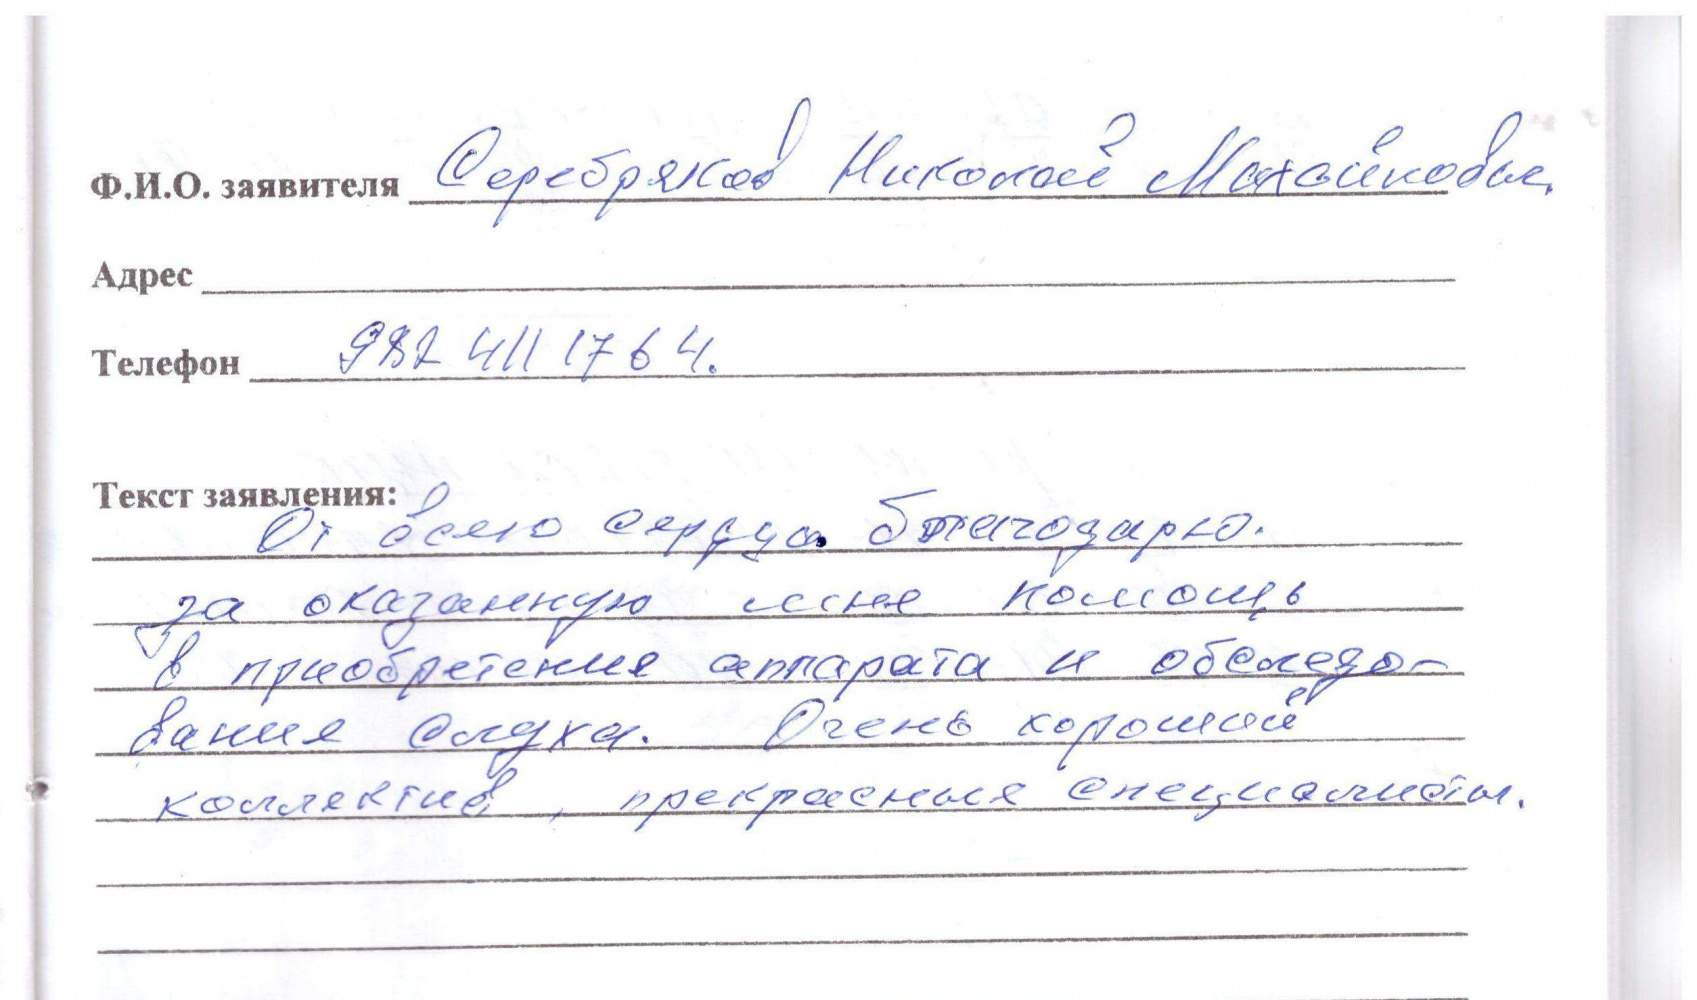 Ф.И.О. заявителя Серебряков Николай Михайлович.
Адрес
Телефон 982 411 1764.
Текст заявления:
От всего сердца благодарю.
за оказанную мне помощь
в приобретения аппарата и обследо-
вания слуха. Очень хороший
коллектив, прекрасные специалисты.